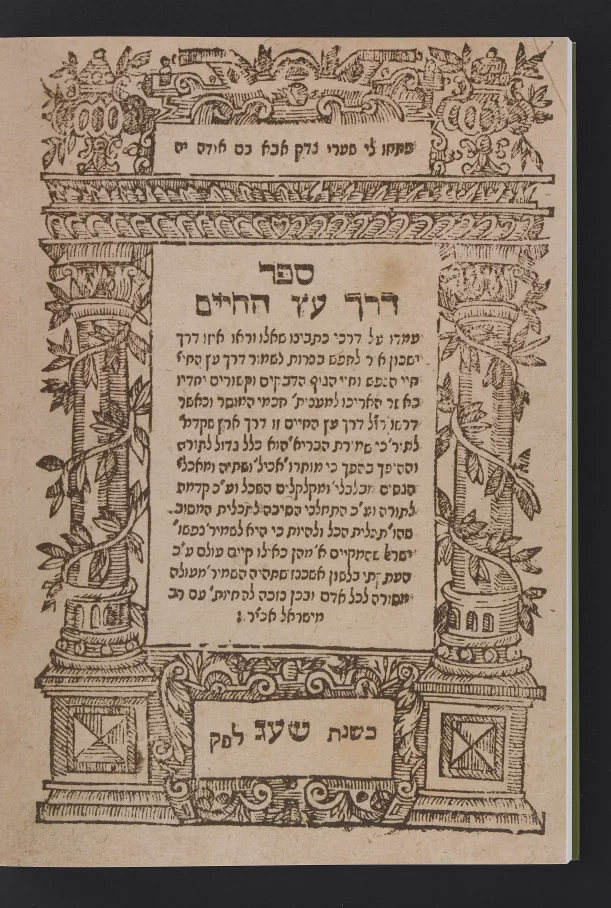 פתחו לי שערי צדק אבא בם אודה יה
ספר
דרך עץ החיים
עמדו על דרכי כתבינו שאלו וראו איזו דרך
ישכון אור לחפש בנרות לשמור דרך עץ החיי'
חיי הנפש וחיי הגוף הדבקים וקשורים יחדיו
באשר האריכו למענית' חכמי המוסר וכאשר
דרשו רז"ל דרך עץ החיים זו דרך ארץ מקדמ'
לתור' כי שמירת הבריא' הוא כלל גדול לתורה
וההיפך בהפך כי מותרו' אכיל' ושתיה ומאכלי'
הגסים מבלבלי' ומקלקלים השכל וע"כ קדמת
לתורה וע"כ התחלתי הסיבה לתכלית המסוב
שהו' תכלית הכל ולהיות כי היא לשמיר' נפשו'
ישראל שהמקיים א' מהן כאילו קיים עולם ע"כ
העתקתי בלשון אשכנז שתהיה השמיר' מעולה
מסורה לכל אדם ובכן נזכה לחיות' עם רב
מישראל אכי"ר:
בשנת שעג לפק